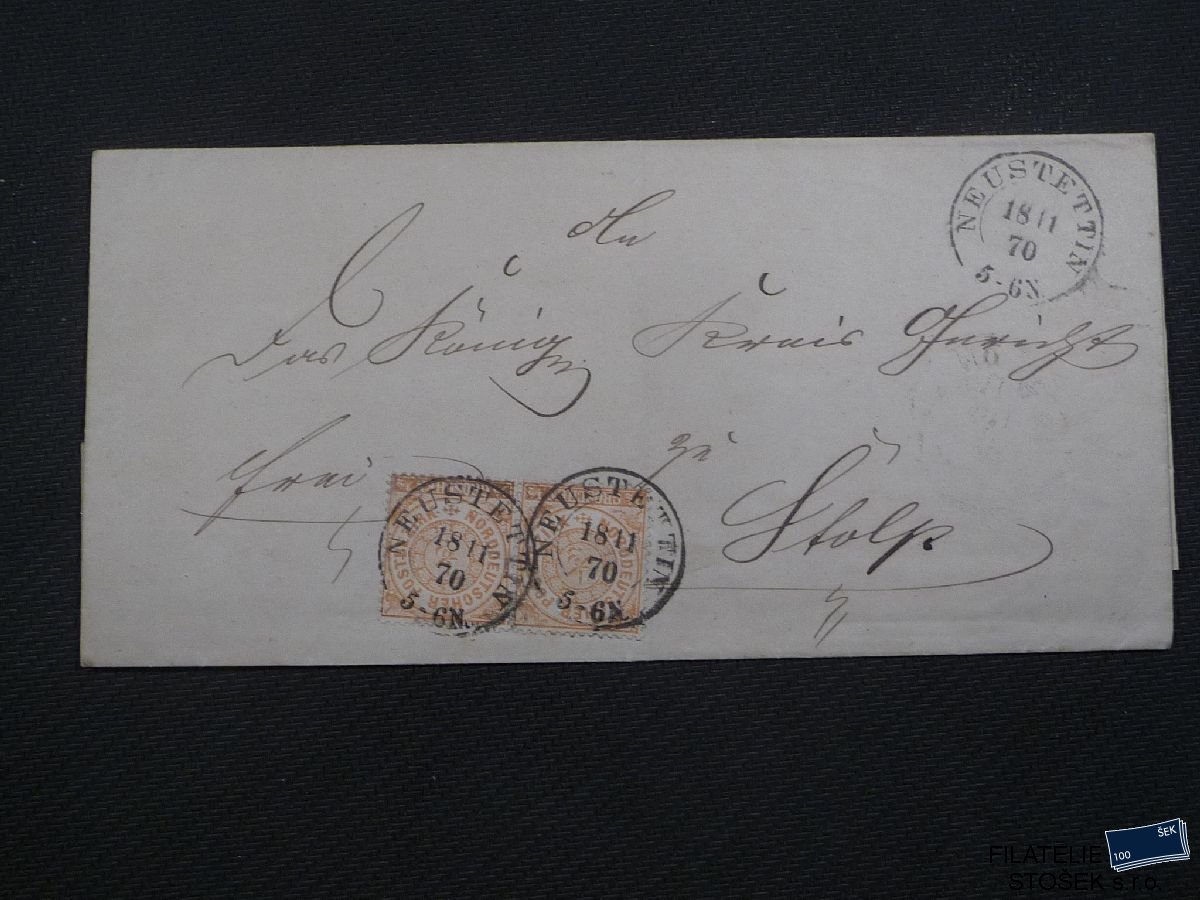 NEUSTETTIN
18 11
70
5-6N.
An
Das König Kreis Gericht
frei
zu
Stolp
NEUSTETTIN
18 11
70
5-6N.
NORDDEUTSCHER POSTBEZIRK
NEUSTETTIN
18 11
70
5-6N.
ŠEK
100
FILATELIE
STOŠEK s.r.o.